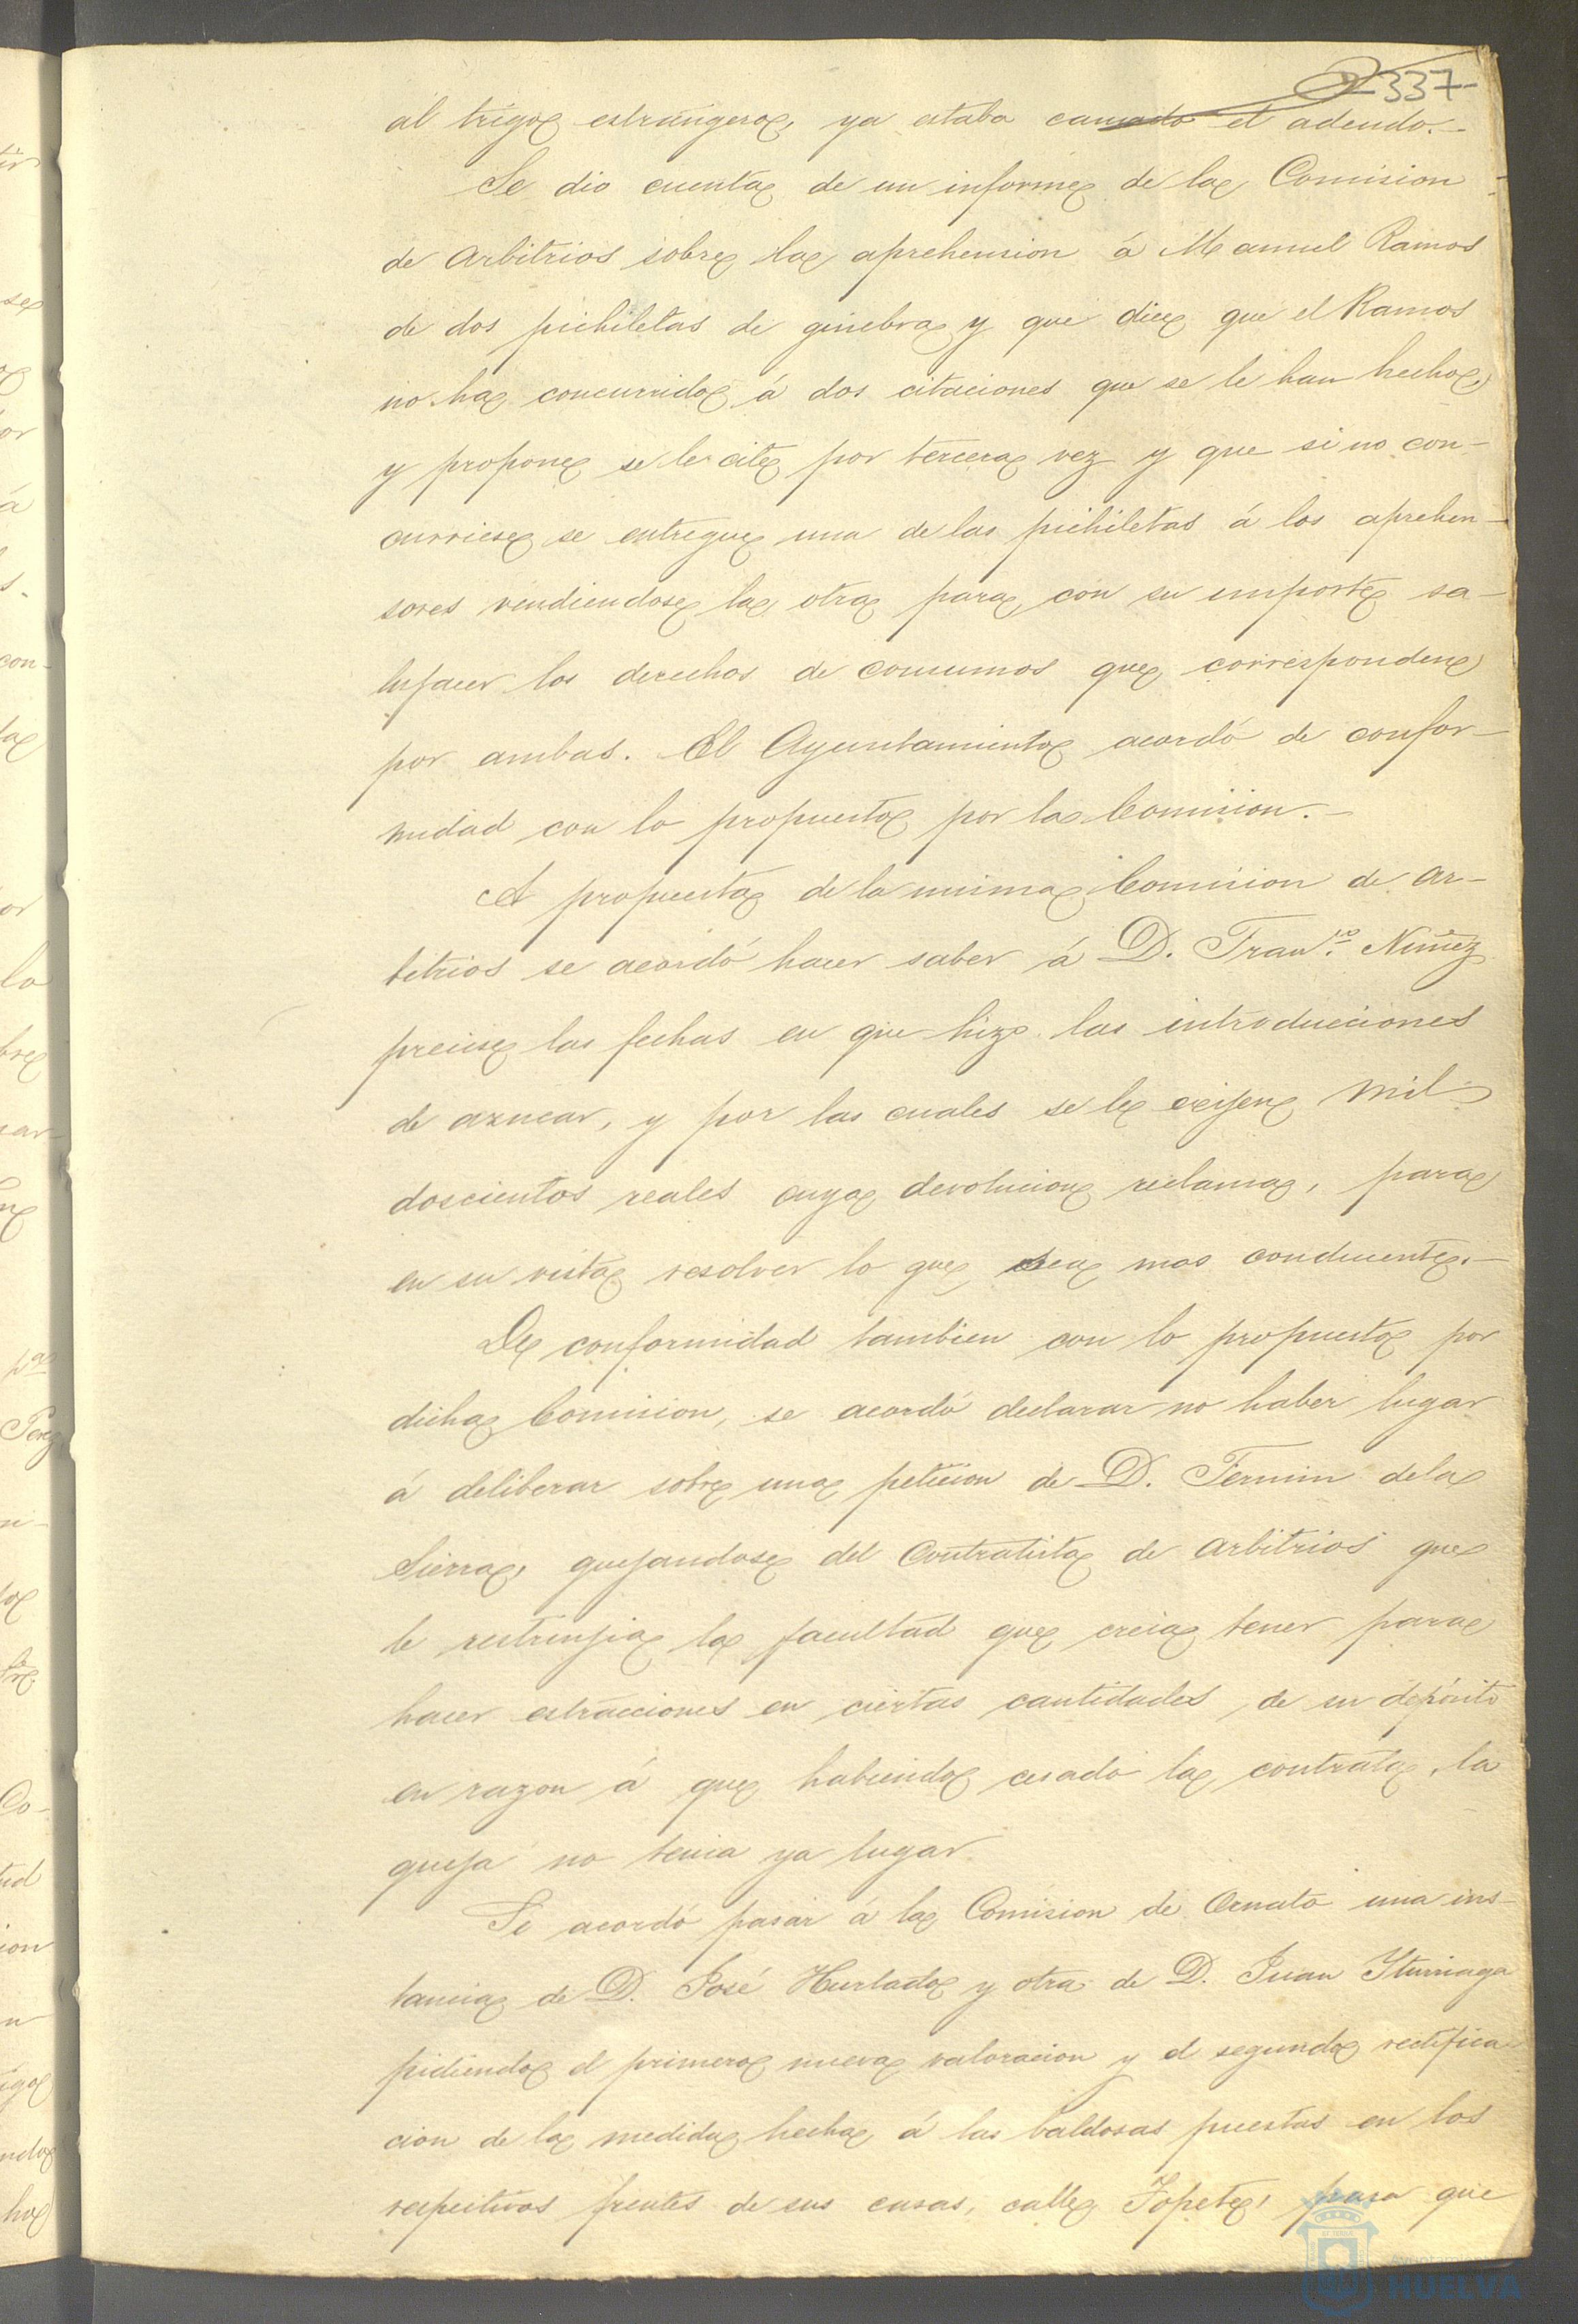 337-
al trigo estrangero, ya estaba causado el adeudo.-
Se dio cuenta de un informe de la Comision
de Arbitrios sobre la aprehension á Manuel Ramos
de dos pichiletas de ginebra y que dice que el Ramos
no ha concurrido á dos citaciones que se le han hecho,
y propone se le cite por tercera vez y que si no con-
curriese se entregue una de las pichiletas á los aprehen-
sores vendiendose la otra para con su importe sa-
tisfacer los derechos de consumos que corresponden
por ambas. El Ayuntamiento acordó de confor-
midad con lo propuesto por la Comision.-
A propuesta de la misma Comision de Ar-
bitrios se acordó hacer saber á D. Franco. Nuñez
precise las fechas en que hizo las introducciones
de azucar, y por las cuales se le exijen mil
doscientos reales cuya devolucion reclama, para
en su vista resolver lo que sea mas conducente.-
De conformidad tambien con lo propuesto por
dicha Comision, se acordó declarar no haber lugar
á deliberar sobre una peticion de D. Fermin dela
Sierra, quejandose del Contratista de Arbitrios que
le restrinjia la facultad que creia tener para
hacer estracciones en ciertas cantidades de su depósito
en razon á que habiendo cesado la contrata, la
queja no tenia ya lugar
Se acordó pasar á la Comision de Ornato una ins-
tancia de D. José Hurtado y otra de D. Juan Yturriaga
pidiendo el primero nueva valoracion y el segundo rectifica-
cion de la medida hecha á las baldosas puestas en los
respectivos frentes de sus casas, calle Topete, para que
HUELVA